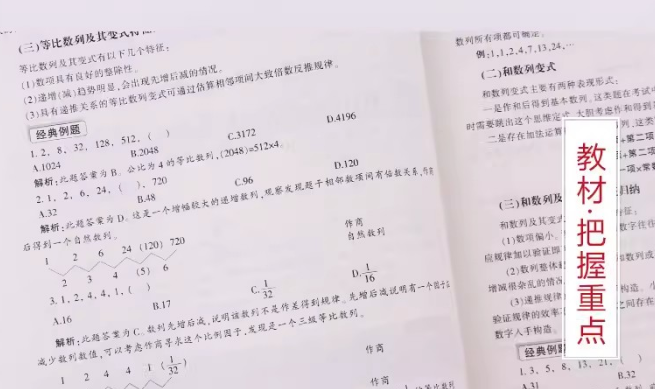 (三)等比数列及其变式特征
等比数列及其变式有以下几个特征:
(1)数项具有良好的整除性。
(2)递增(减)趋势明显,会出现先增后减的情况。
(3)具有递推关系的等比数列变式可通过估算相邻项间大致倍数反推规律。
经典例题
1. 2, 8, 32, 128, 512, ( )
A.1024 B.2048 C.3172 D.4196
解析:此题答案为 B。公比为 4 的等比数列,(2048)=512×4。
2. 1, 2, 6, 24, ( ), 720
A.32 B.48 C.96 D.120
解析:此题答案为 D。这是一个增幅较大的递增数列,观察发现题干相邻数项间有倍数关系,作商
后得到一个自然数列。
1 2 6 24 (120) 720
2 3 4 (5) 6
作商
自然数列
3. 1, 2, 4, 4, 1, ( )
A.16 B.17 C.1/32 D.1/16
解析:此题答案为 C。数列先增后减,说明该数列不是作差得到规律。先增后减说明有一个因子在
减少数列数值,可以考虑作商寻求这个比例因子,发现是一个三级等比数列。
1 2 4 4 1 (1/32)
作商
作商
数列所有项都可确定。
例:1,1,2,4,7,13,24,…
(二)和数列变式
和数列变式主要有两种表现形式:
一是作和后得到基本数列。这类题在考试中
时需要跳出这个思维定式,大胆考虑作和得到
二是存在加法运算
列,这类
+第二项
+第二项
一项×常数
(三)和数列及
归纳
和数列及其变式
征:
(1)数项偏小。
数字往往
应规律加以验证即
(2)数列整体
和数列或
增减很杂乱的情况
(3)递推规律
构造。
验证规律的效率
之间存在
数字人手构造。
经典例题
1. 3, 5, 8, 13, 21, ( )
A.31 B.32
教材·把握重点